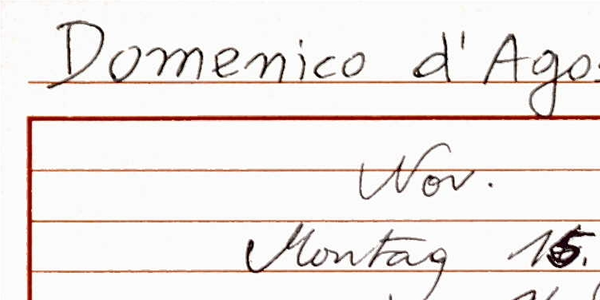 Domenico d'Agos
Nov.
Montag 15.